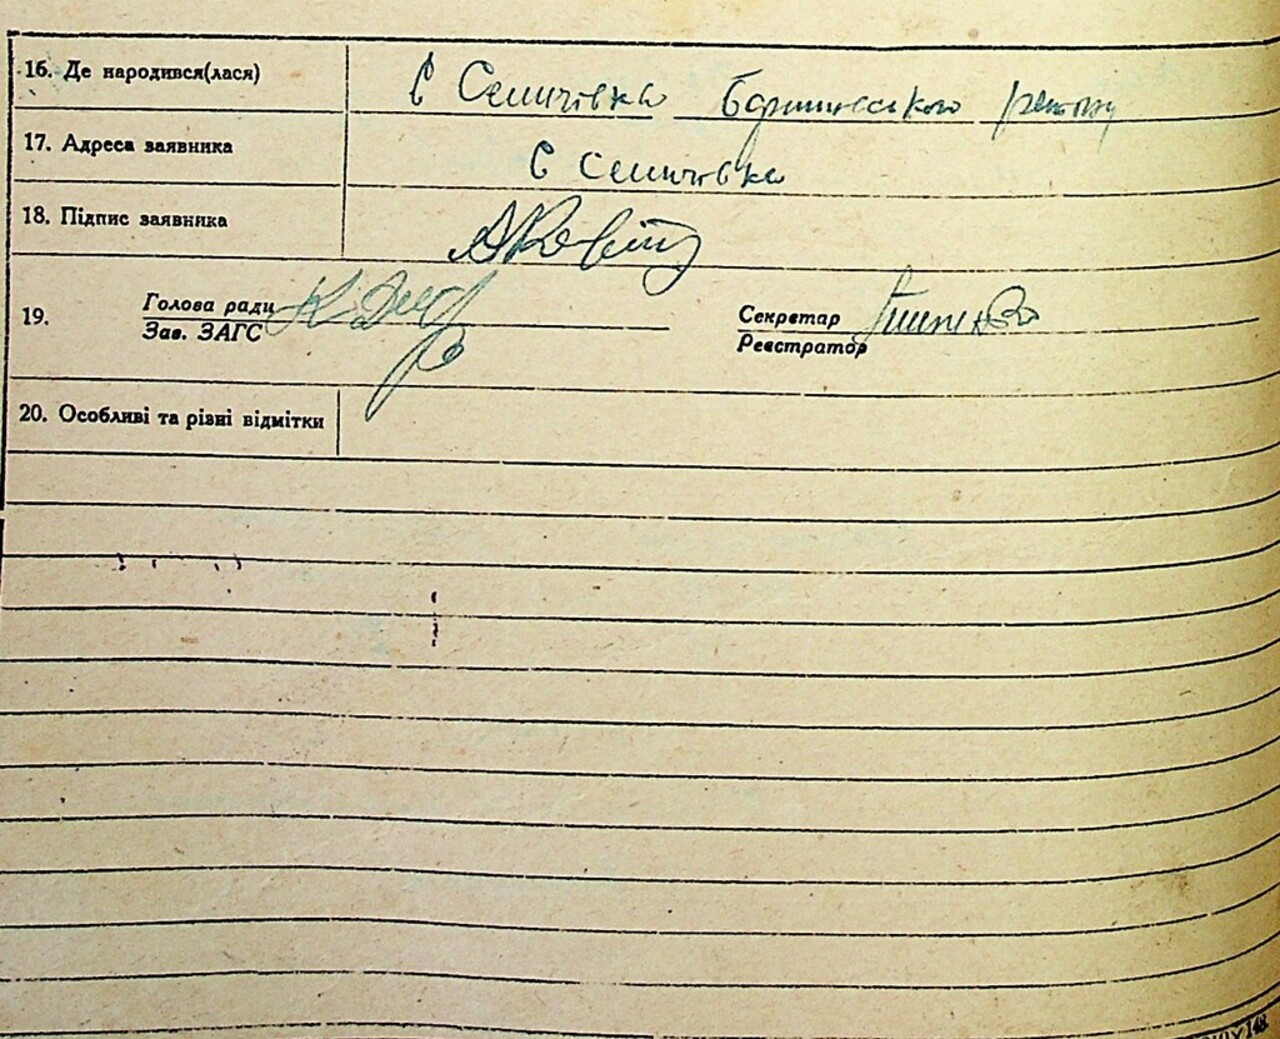 16. Де народився(лася) С Семичівка Баришівського району
17. Адреса заявника С Семичівка
18. Підпис заявника
19. Голова ради Секретар
Зав. ЗАГС Реєстратор
20. Особливі та різні відмітки